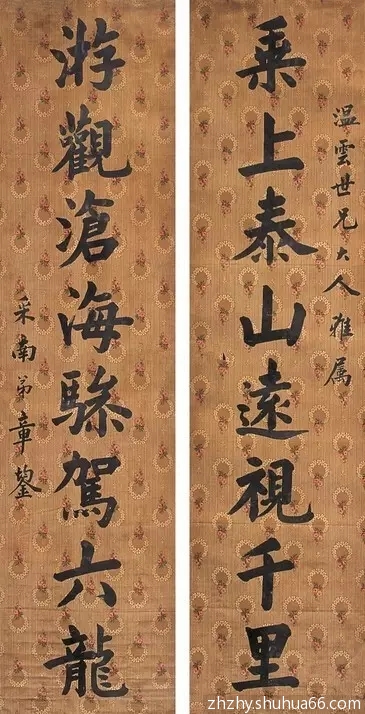 温雲世兄大人雅屬
乘上泰山遠視千里
游觀滄海驂駕六龍
采南弟章鋆
zhzhy.shuhua66.com